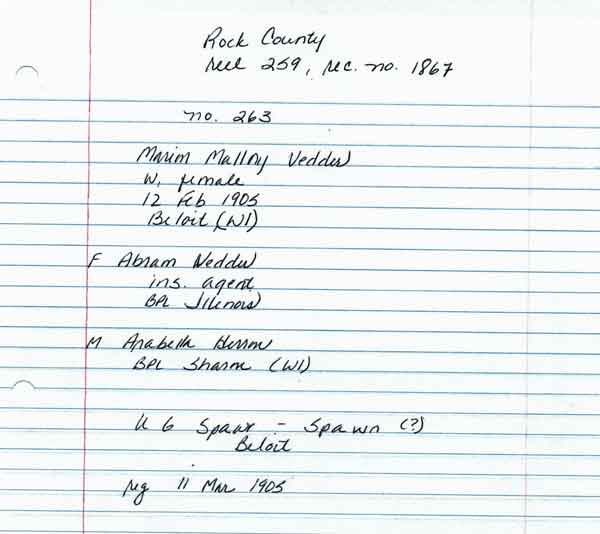 Rock County
reel 259, rec. no. 1867
no. 263
Marion Mallory Vedder
W, female
12 Feb 1905
Beloit (WI)
F Abram Vedder
ins. agent
BPL Illinois
M Anabelle
BPL Sharon (WI)
6 Spawr - Spawn (?)
Beloit
reg 11 Mar 1905